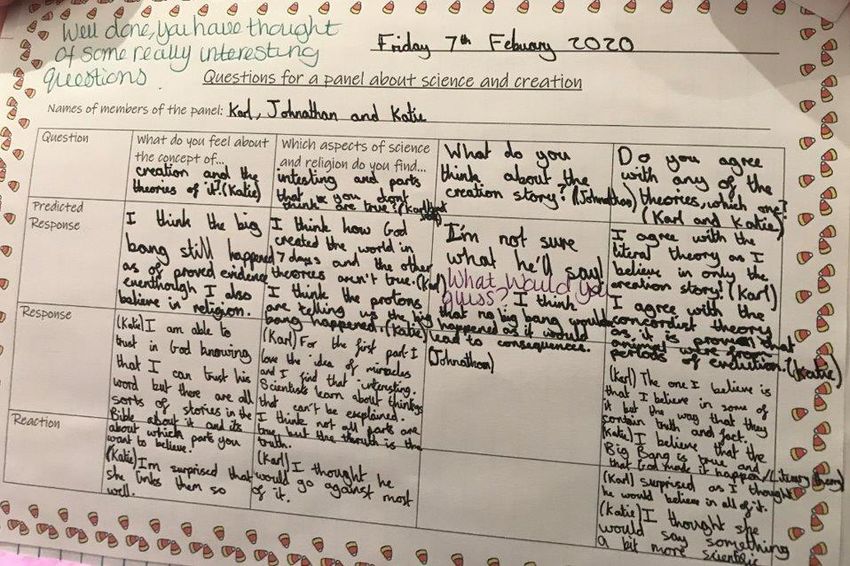 Well done, you have thought
of some really interesting
questions.
Friday 7th Febuary 2020
Questions for a panel about science and creation
Names of members of the panel: Karl, Johnathan and Katie
Question
What do you feel about
the concept of...
creation and the
theories of it? (Katie)
Which aspects of science
and religion do you find...
intesting and parts
that you dont
think are true? (Karl
What do you
think about the
creation story? (Johnathan)
Do you agree
with any of the
theories, which one?
(Karl and Katie)
Predicted
Response
I think the big
bang still happened
as of proved evidence
eventhough I also
believe in religion.
I think how God
created the world in
7 days and the other
theories aren't true. (Karl)
I think the protons
are telling us the big
bang happened. (Katie)
I'm not sure
what he'll say!
What would you
guess? I think
that no big bang would
happened as it would
lead to consequences.
(Johnathan)
I agree with the
literal theory as I
believe in only the
creation story! (Karl)
I agree with the
concordist theory
as it is proven that
animals were from
periods of evolution. (Katie)
Response
(Katie) I am able to
trust in God knowing
that I can trust his
word but there are all
sorts of stories in the
Bible about it and its
about which parts you
want to believe.
(Karl) For the first part I
love the idea of miracles
and I find that interesting.
Scientists learn about things
that can't be explained.
I think not all parts are
true but the is the
truth.
(Karl) The one I believe is
that I believe in some of
it but the way that they
contain truth and fact.
(Katie) I believe that the
Big Bang is true and
that God made it happen. (Literary theory)
Reaction
(Katie) I'm surprised that
she links them so
well.
(Karl) I thought he
would go against most
of it.
(Karl) surprised as I thought
he would believe in all of it.
(Katie) I thought she
would say something
a bit more scientific